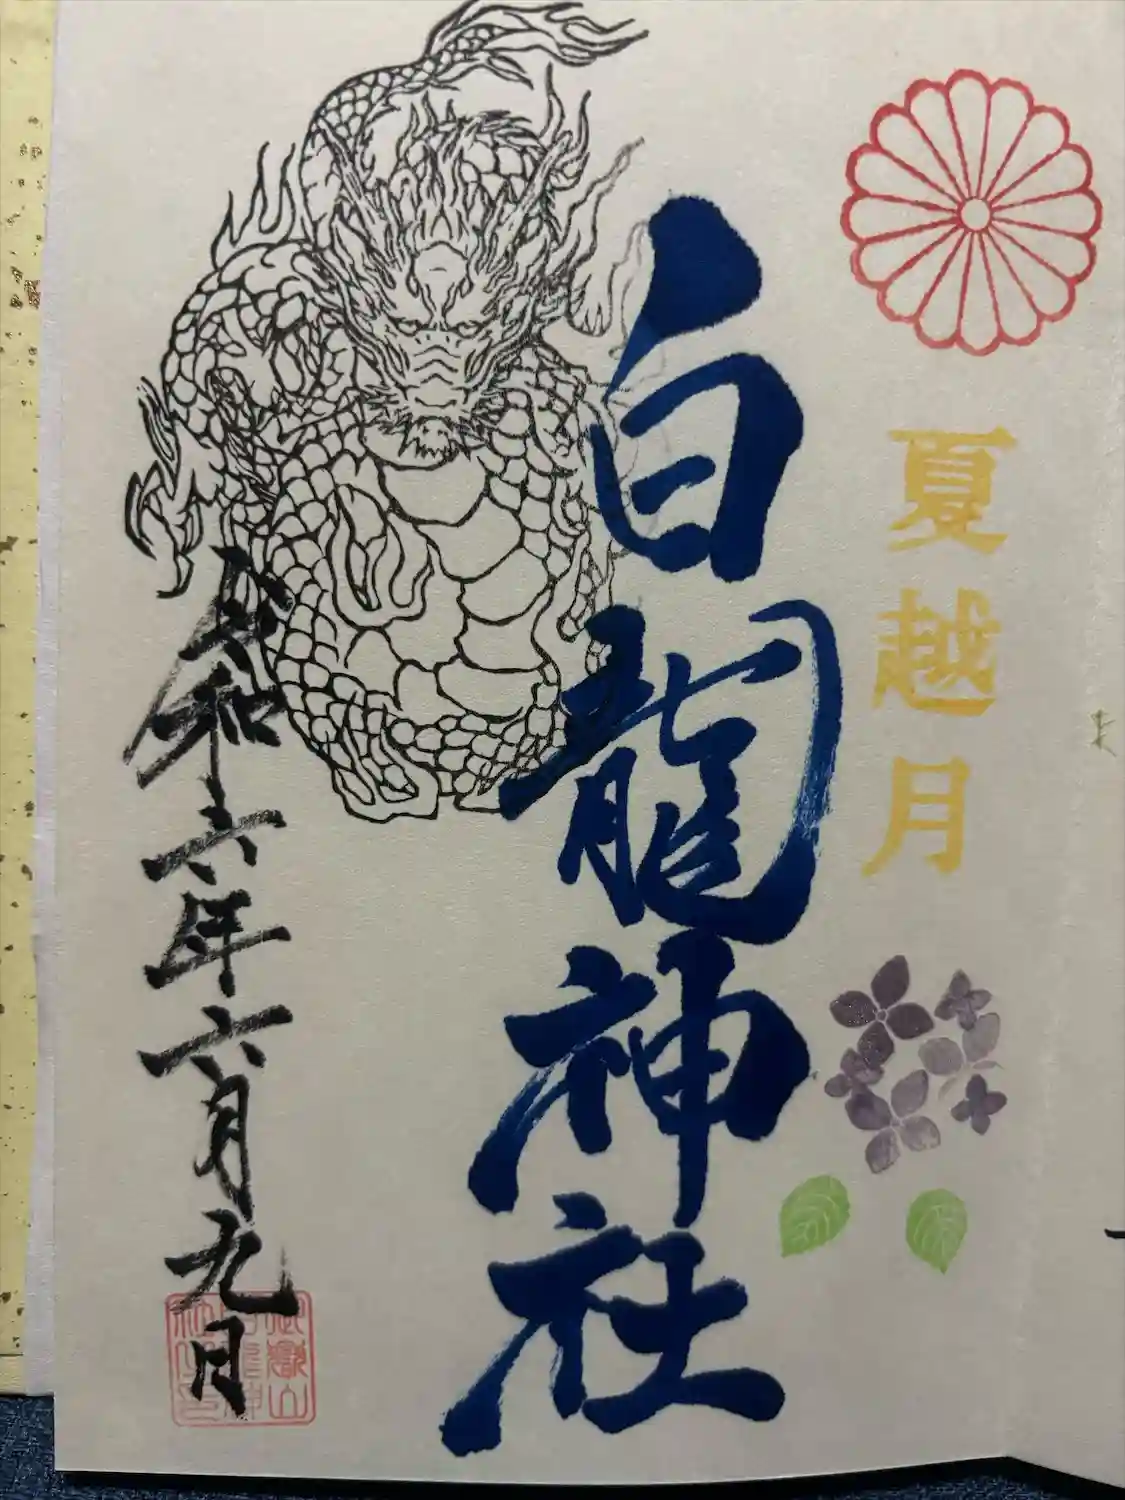 夏越月
白龍神社
令和六年六月九日